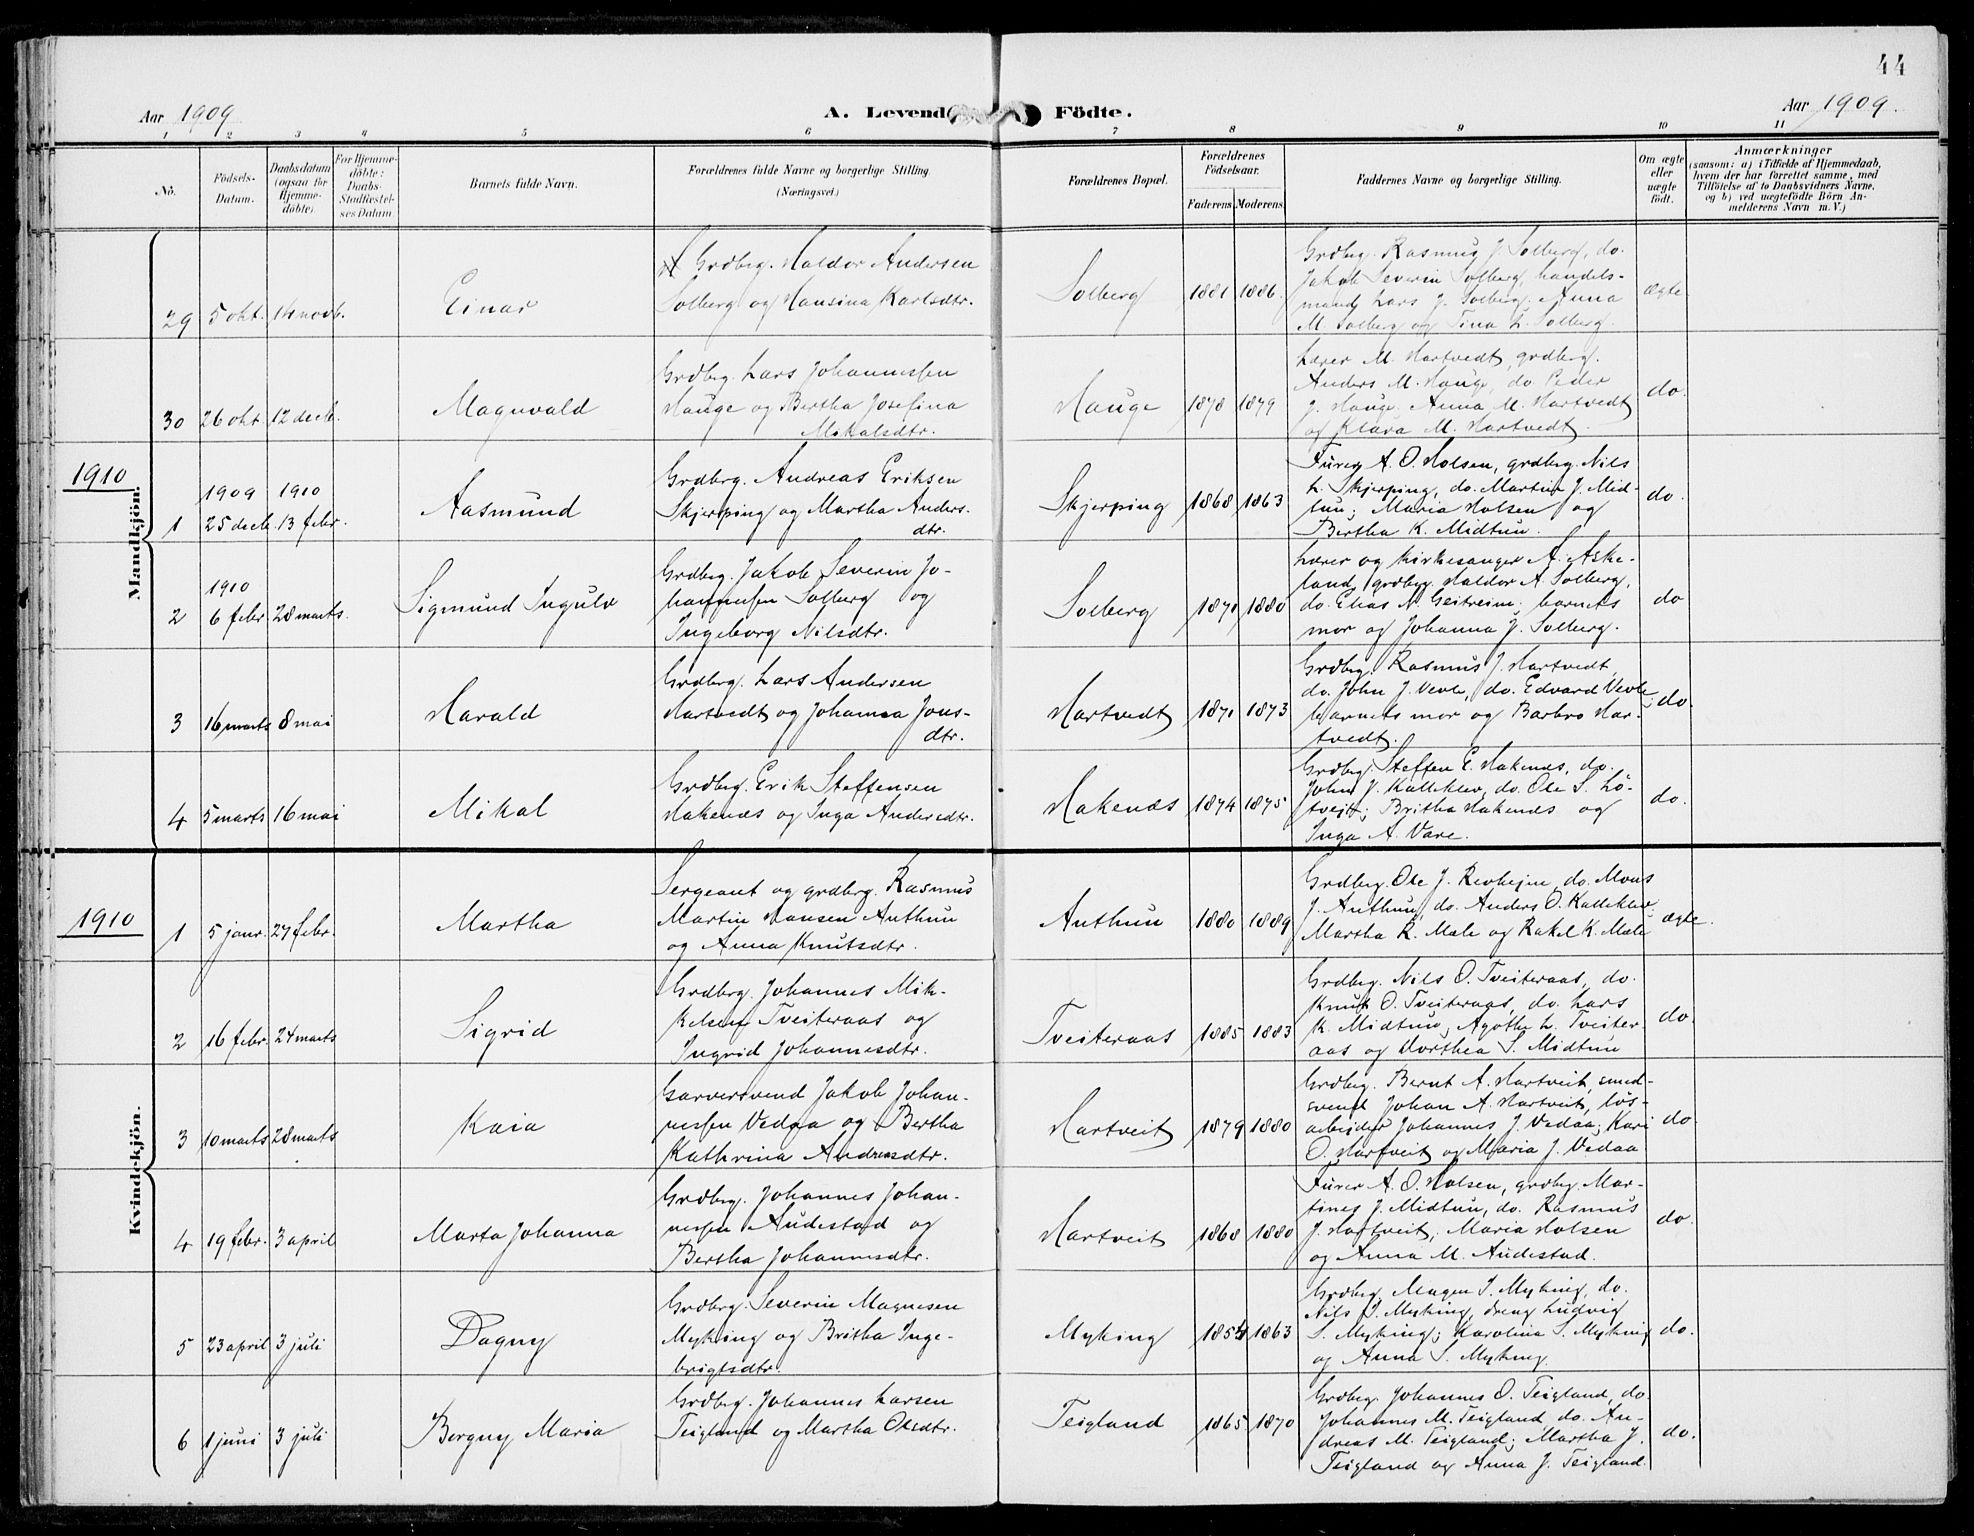 44
Aar 1909 A. Levende Födte. Aar 1909.
1 2 3 4 5 6 7 8 9 10 11
No. Födsels-Datum. Daabsdatum (ogsaa for Hjemmedöbte). For Hjemmedöbte: Daabs-Stadfæstelses Datum Barnets fulde Navn. Forældrenes fulde Navne og borgerlige Stilling (Næringsvei) Forældrenes Bopæl. Forældrenes Födselsaar. Faderens. Moderens. Faddernes Navne og borgerlige Stilling. Om ægte eller uægte født. Anmærkninger
(saasom: a) i Tilfælde af Hjemmedaab,
hvem der har forrettet samme, med
Tilföielse af to Daabsvidners Navne,
og b) ved uægtefödte Börn An-
melderens Navn m. V.)
Mandkjön.
29 5 okt. 14 novb. Einar
Grdbrg. Haldor Andersen
Solberg og Hansina Karlsdtr.
Solberg 1881 1886.
Grdbrg. Rasmus J. Solberg, do.
Jakob Severin Solberg, handels-
mand Lars J. Solberg. Anna
M. Solberg og Tina L. Solberg.
ægte
30 26 okt. 12 decb. Magnvald
Grdbrg. Lars Johannessen
Hauge og Bertha Josefina
Mikalsdtr.
Hauge 1878 1879
Lærer M. Hartvedt, grdbrg.
Anders M. Hauge, do. Peder
J. Hauge. Anna M. Hartvedt
og Klara M. Hartvedt.
do.
1910
1 1909 25 decb. 1910 13 febr. Aasmund
Grdbrg. Andreas Eriksen
Skjerping og Martha Anders.
dtr.
Skjerping 1868 1863
Furer A. O. Holsen, grdbrg. Nils
L. Skjerping, do. Martin J. Mid-
tun; Maria Holsen og
Bertha K. Midtun.
do.
2 1910 6 febr. 28 marts. Sigmund Ingulv
Grdbrg. Jakob Severin Jo-
hannessen Solberg og
Ingeborg Nilsdtr.
Solberg 1871 1880
Lærer og kirkesanger A. Aske-
land, grdbrg. Haldor A. Solberg,
do. Elias N. Geitreim; barnets
mor og Johanna J. Solberg.
do
3 16 marts 8 mai Harald
Grdbrg. Lars Andersen
Hartvedt og Johanna Jons-
dtr.
Hartvedt 1871 1873
Grdbrg. Rasmus J. Hartvedt,
do. John J. Vevle, do. Edvard Vevle
barnets mor og Barbro Har-
tvedt.
do.
4 5 marts 16 mai Mikal
Grdbrg. Erik Steffensen
Hakenæs og Inga Andersdtr.
Hakenæs 1874 1875
Grdbrg. Steffen E. Hakenæs, do.
John J. Kalleklev, do. Ole S. Lö-
tveit; Britha Hakenæs og
Inga A. Vare.
do.
1910
Kvindekjön.
1 5 janr. 27 febr. Martha
Sergeant og grdbrg. Rasmus
Martin Hansen Anthun
og Anna Knutsdtr.
Anthun 1880 1889
Grdbrg. Ole J. Revhejm, do. Mons
J. Anthun, do. Anders O. Kalleklev
Martha R. Male og Rakel K. Male
ægte.
2 16 febr. 24 marts Sigrid
Grdbrg. Johannes Mik-
kelsen Tveiteraas og
Ingrid Johannesdtr.
Tveiteraas 1885 1883
Grdbrg. Nils O. Tveiteraas, do.
Knut O. Tveiteraas, do. Lars
K. Midtun, Agothe L. Tveiter-
aas og Dorthea S. Midtun
do.
3 10 marts 28 marts Kaia
Garversvend Jakob Johan-
nessen Vedaa og Bertha
Kathrina Andreasdtr.
Hartveit 1879 1880
Grdbrg. Bernt A. Hartveit, smed-
svend Johan A. Hartveit, lös-
arbeider Johannes J. Vedaa; Kari
O. Hartveit og Maria J. Vedaa
do.
4 19 febr. 3 april Marta Johanna
Grdbrg. Johannes Johan-
nessen Audestad og
Bertha Johannesdtr.
Hartveit 1868 1880
Furer A. O. Holsen, grdbrg. Mar-
tines J. Midtun, do. Rasmus
J. Hartveit; Maria Holsen
og Anna M. Audestad.
do.
5 23 april 3 juli Dagny
Grdbrg. Severin Magnesen
Myking og Britha Inge-
brigtsdtr.
Myking 1854 1863
Grdbrg. Magne S. Myking, do.
Nils S. Myking, dreng Ludvig
S. Myking; Karolina S. Myking
og Anna S. Myking.
do.
6 1 juni 3 juli Borgny Maria
Grdbrg. Johannes Larsen
Teigland og Martha Olsdtr.
Teigland 1865 1870
Grdbrg. Johannes O. Teigland, do
Johannes M. Teigland, do. An-
dreas M. Teigland; Martha J.
Teigland og Anna J. Teigland.
do.